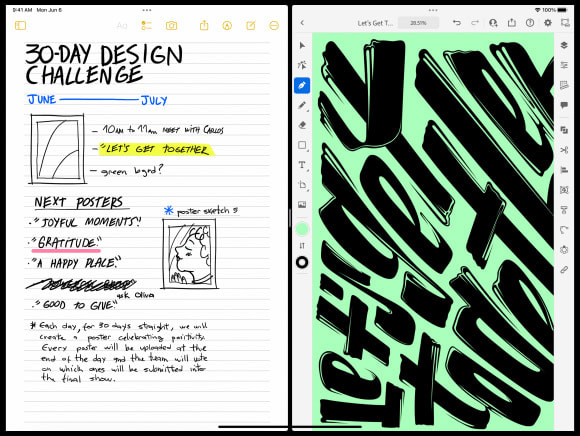 9:41 AM Mon Jun 6
100%
Aa
30-DAY DESIGN
CHALLENGE
JUNE JULY
- 10AM TO 11AM MEET WITH CARLOS
- "LET'S GET TOGETHER
- green bgrd?
NEXT POSTERS
* poster sketch s
· "JOYFUL MOMENTS"
· "GRATITUDE"
· "A HAPPY PLACE"
ask Olivia
· "GOOD TO GIVE"
* Each day, for 30 days straight, we will
create a poster celebrating positivity.
Every poster will be uploaded at the
end of the day and the team will vote
on which ones will be submitted into
the final show.
Let's Get T...
T